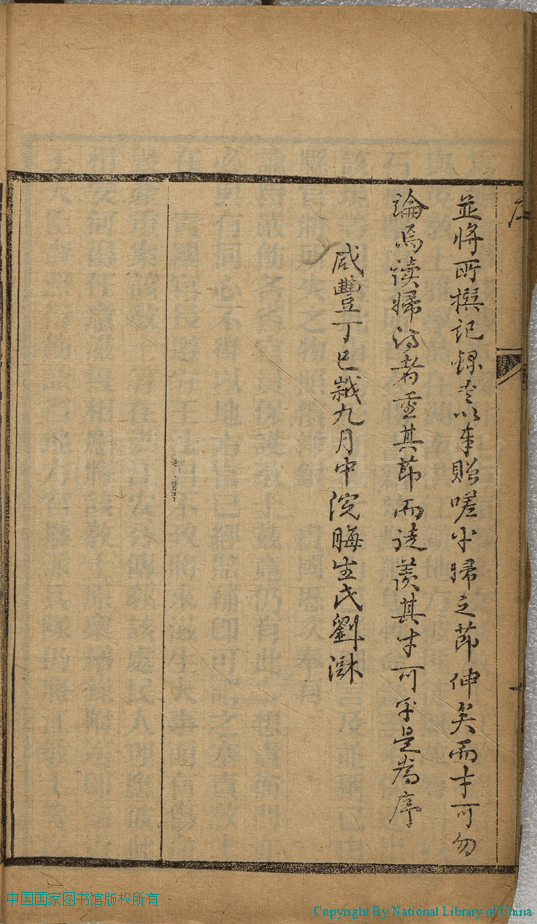 並將所撰記錄壹以事贈嗟乎婦之節伸矣而才可勿
論焉讀婦詩者重其節而徒羨其才可乎是為序
咸豐丁巳歲九月中浣晦生氏劉淋
中国国家图书馆版权所有
Copyright By National Library of China